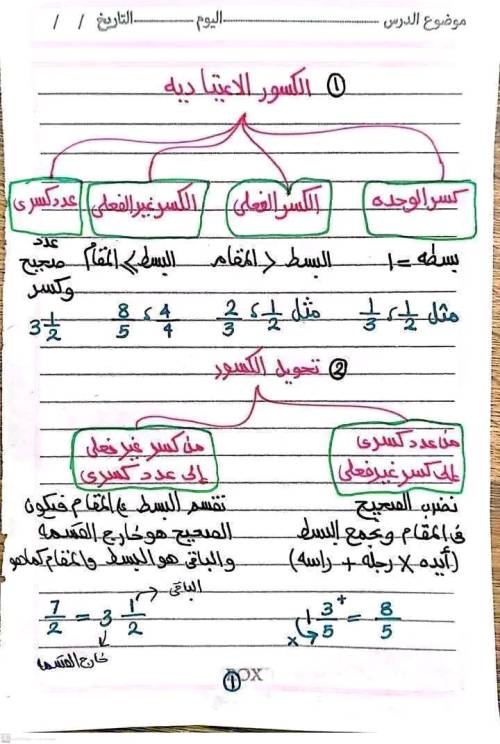 موضوع الدرس اليوم التاريخ / /
① الكسور الاعتياديه
كسر الوحده
الكسر الفعلى
الكسر غير الفعلى
عدد كسرى
بسطه = 1
البسط < المقام
البسط ⩾ المقام
عدد صحيح وكسر
مثل 1/2 ، 1/3
مثل 1/2 ، 2/3
4/4 ، 8/5
3 1/2
② تحويل الكسور
من عدد كسرى
إلى كسر غير فعلى
من كسر غير فعلى
إلى عدد كسرى
نضرب الصحيح
فى المقام ونجمع البسط
(أيده × رجله + راسه)
نقسم البسط ع المقام فيكون
الصحيح هو خارج القسمه
والباقى هو البسط والمقام كما هو
1 3/5 = 8/5
+
×
الباقى
7/2 = 3 1/2
خارج القسمه
ROX
①